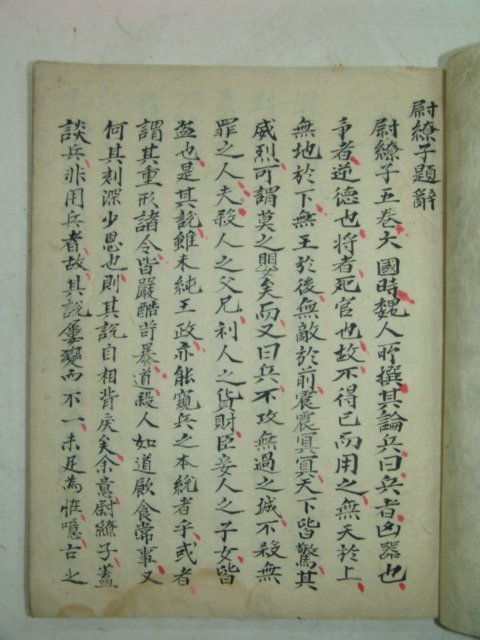 尉繚子題辭
尉繚子五卷六國時魏人所撰其論兵曰兵者凶器也
爭者逆德也將者死官也故不得已而用之無天於上
無地於下無王於後無敵於前震震冥冥天下皆驚其
威烈可謂莫之嬰矣而又曰兵不攻無過之城不殺無
罪之人夫殺人之父兄利人之貨財臣妾人之子女皆
盜也是其說雖未純王政亦能窺兵之本統者乎或者
謂其重形諸令皆嚴酷苛暴道殺人如道飮食常事又
何其刻深少恩也則其說自相背戾矣余意尉繚子蓋
談兵非用兵者故其說屢變而不一未足爲怪噫古之